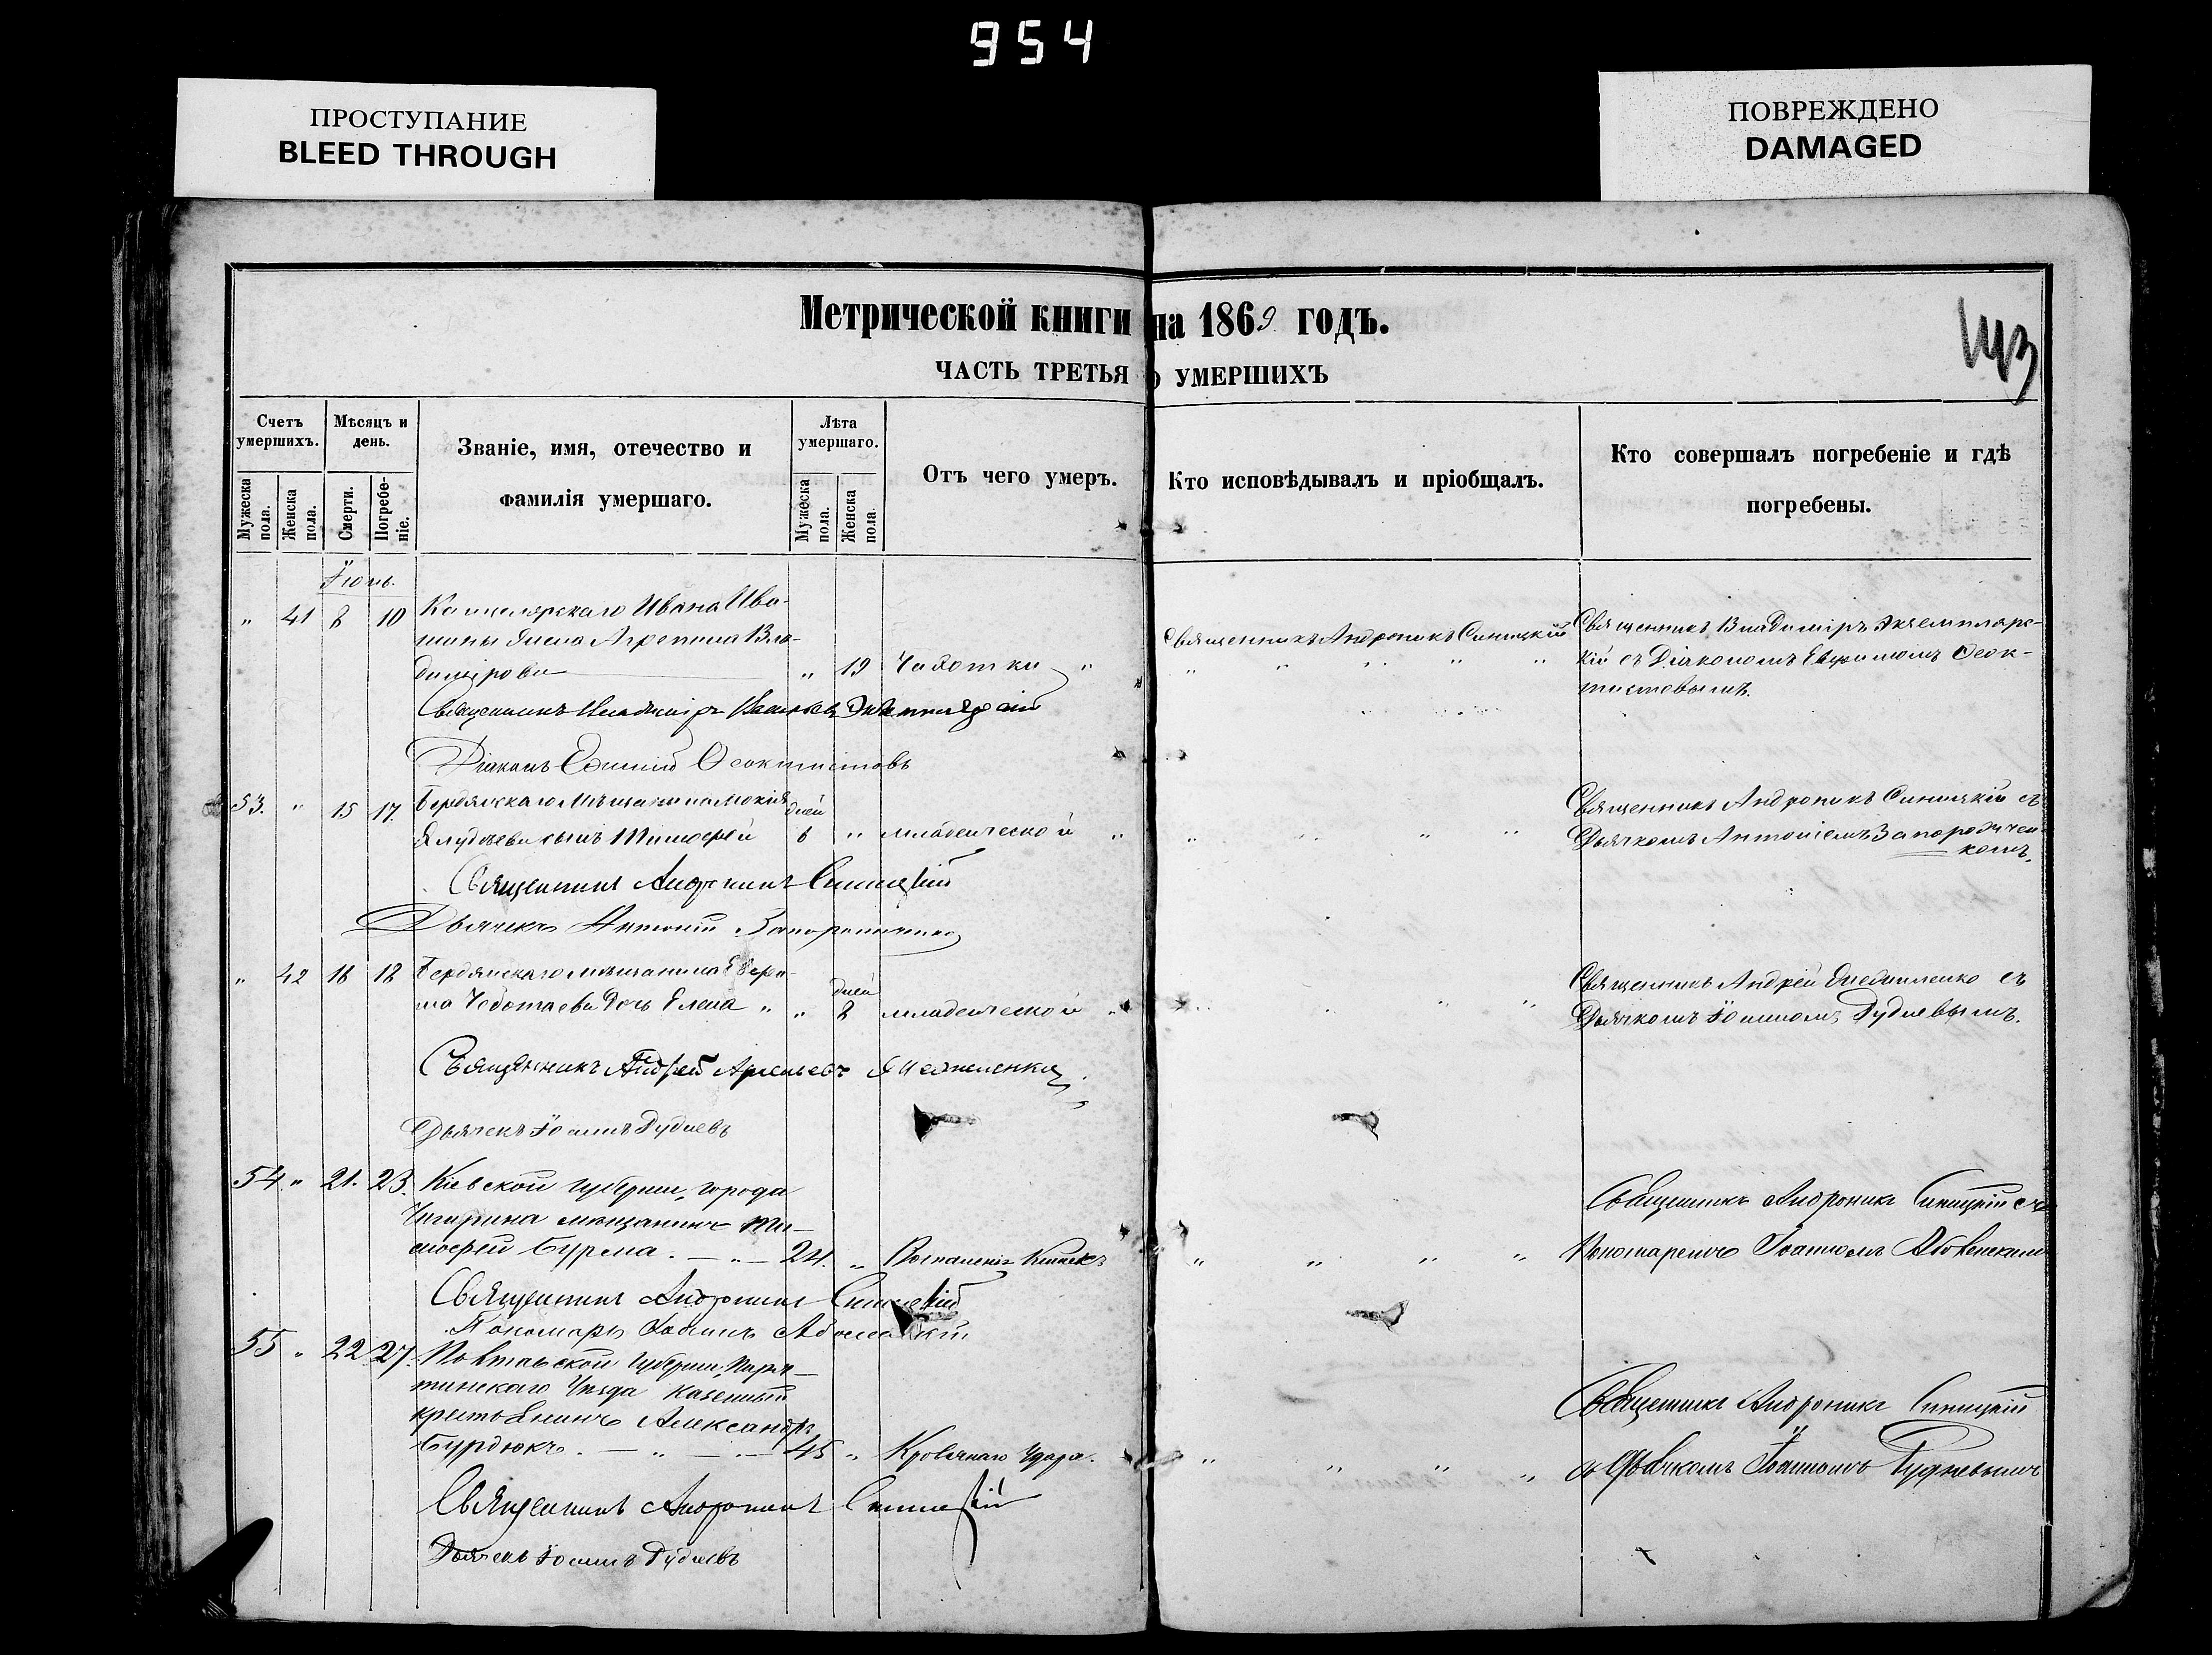 954
ПРОСТУПАНИЕ
BLEED THROUGH
ПОВРЕЖДЕНО
DAMAGED
Метрической книги на 1869 годъ.
ЧАСТЬ ТРЕТЬЯ О УМЕРШИХЪ
Счетъ умершихъ.
Мужеска пола.
Женска пола.
Мѣсяцъ и день.
Смерти.
Погребеніе.
Званіе, имя, отечество и
фамилія умершаго.
Лѣта умершаго.
Мужеска пола.
Женска пола.
Отъ чего умеръ.
Кто исповѣдывалъ и пріобщалъ.
Кто совершалъ погребеніе и гдѣ
погребены.
Іюнь.
" 41 8 10 Канцелярскаго Ивана
Агрепина Вла-
димірова " 19 Чахотки "
Священникъ Андроникъ Синицкій
Священникъ Владиміръ Экземпляр-
кій съ Діакономъ Евфимомъ Ѳеок-
тистовымъ.
Священникъ Владиміръ
Діаконъ Ѳеоктистовъ
53. " 15 17. Бердянскаго мѣщанина
сынъ Тимоѳей дней 6 " младенческой "
Священникъ Андроникъ Синицкій съ
Дьячкомъ Антоніемъ Запорожчен-
комъ.
Священникъ Андроникъ Синицкій
Дьячекъ Антоній
" 42 16 18 Бердянскаго мѣщанина
дочь Елена " " дней 8 младенческой "
Священникъ Андрей съ
Дьячкомъ Іоанномъ Рудневымъ.
Священникъ Андрей
Дьячекъ Іоаннъ Рудневъ
54 " 21. 23. Кіевской губерніи, города
Чигирина мѣщанинъ Ти-
моѳей Бурма. — " — 24. " Воспаленія Кишекъ
Священникъ Андроникъ Синицкій съ
Пономаремъ Іоанномъ
Священникъ Андроникъ Синицкій
Пономарь Іоаннъ
55 " 22 27. Полтавской губерніи, Пиря-
тинскаго Уѣзда казенный
крестьянинъ Александръ
Бурдюкъ. — " — 45 " Кровянаго Удара.
Священникъ Андроникъ Синицкій
съ Дьячкомъ Іоанномъ Рудневымъ
Священникъ Андроникъ Синицкій
Дьячекъ Іоаннъ Рудневъ